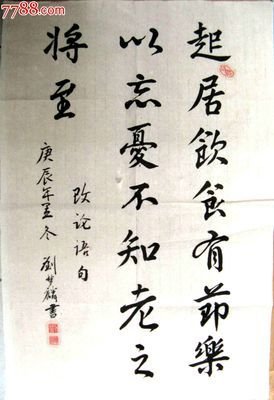 7788.com
起居飲食有節樂
以忘憂不知老之
將至
改论语句
庚辰年至冬 劉梦麟書